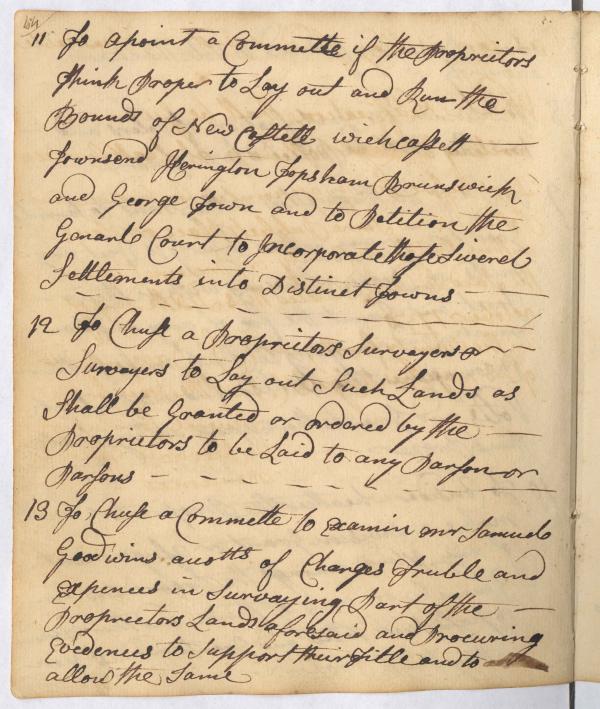 11 To apoint a Committe if the Proprietors
think Proper to Lay out and Run the
Bounds of New Castell wichcassett —
Townsend Herington Topsham Brunswick
and George Town and to Petition the
Genarle Court to Incorporate those Siverel
Settlements into Distinct Towns —
12 To Chuse a Proprietors Surveyers or —
Surveyers to Lay out Such Lands as
Shall be Granted or ordered by the —
Proprietors to be Laid to any Parson or
Parsons —
13 To Chuse a Committe to Examin mr Samuel
Goodwins of Charges Truble and
Expences in Survaying Part of the —
Proprietors Lands aforesaid and Procuring
Evedences to Support their Title and to
allow the Same